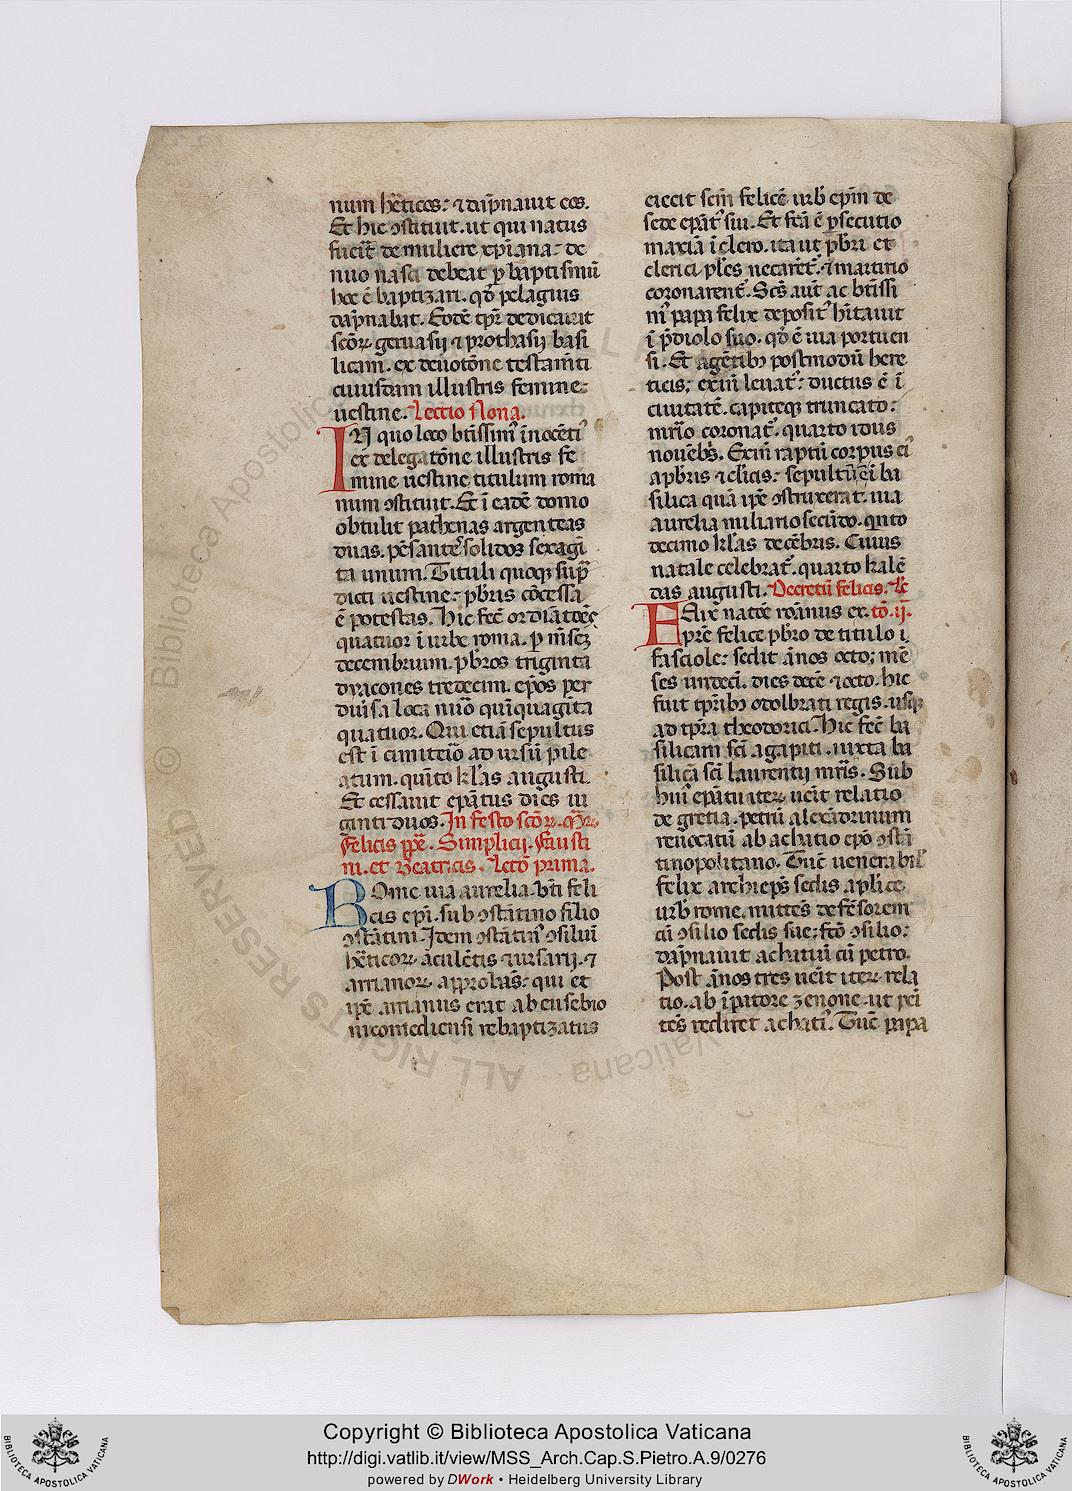 num h̄eticos: ⁊ dāpnauit eos.
Et hic ꝯstituit. ut qui natus
fuerit de muliere xp̄iana: de
nuo nasci debeat ꝑ baptismū
hoc ē baptizari. qd̓ pelagius
dāpnabat. Eodē tp̄r dedicauit
scōꝝ geruasij ⁊ prothasij basi
licam. ex deuotōne testam̄ti
cuiusdam illustris femine:
uestine. Lectio Nona.
IN quo loco bt̄issim᾽ inōcēti᾽
ex delegatōne illustris fe
mine uestine titulum roma
num ꝯstituit. Et ī eadē domo
obtulit pathenas argenteas
duas. pēsante᷒ solidoꝝ sexagī
ta unum. Tituli quoqꝫ sup̄
dicti uestine: pb̄ris cōcessa
ē potestas. Hic fec̄ ordiātōes
quatuor ī urbe roma. ꝑ m̄seꝫ
decembrium. pb̄ros triginta
dyacones tredecim. ep̄os per
diūsa loca nūo quīquagīta
quatuor. Qui etiā sepultus
est ī cimit̄io ad ursū pile
atum. quīto kl̄as augusti.
Et cessauit ep̄atus dies ui
ginti duos. In festo scōꝝ. Mr̄ꝝ.
Felicis pp̄e. Simplicij. Fausti
ni. et Beatricis. Lectō prima.
Rome uia aurelia. bt̄i feli
cis ep̄i. sub ꝯstātino filio
ꝯstātini. Idem ꝯstātin᾽ ꝯsiliū
h̄eticoꝝ aculētis ⁊ ursarij. ⁊
arrianoꝝ approbās: qui et
ip̄e arrianus erat ab eusebio
nicomediensi rebaptizatus
eiecit scm̄ felicē urb᷒ ep̄m de
sede ep̄at᷒ sui. Et fc̄a ē ꝑsecutio
maxīa ī clero. ita ut pb̄ri et
clerici pl̄es necarēt᷒. ⁊ martirio
coronarent᷒. Scs̄ aūt ac bt̄issi
m᾽ papa felix deposit᾽ hītauit
ī p̄diolo suo. qd̓ ē uia portuen
si. Et agētibꝫ postmodū here
ticis; exīn leuat᾽: ductus ē ī
ciuitatē. capiteqꝫ truncato:
mr̄io coronat᷒. quarto ydus
nouēb᷒s. Exīn raptū corpus ei᾽
a pb̄ris ⁊ cl̄icis: sepultū ē ī ba
silica quā ip̄e ꝯstruxerat. uia
aurelia miliario secūdo. quīto
decimo kl̄as decēbris. Cuius
natale celebrat᷒. quarto kalē
das augusti. Decretū felicis. Lc̄
Felix natōe romanus ex tō. ij.
pr̄e felice pb̄ro de titulo ī
fasciole: sedit ānos octo; mē
ses undecī. dies decē ⁊ octo. hic
fuit tp̄ribꝫ odolbrati regis. usqꝫ
ad tp̄ra theodorici. Hic fec̄ ba
silicam scī agapiti. iuxta ba
silicā scī laurentij mr̄is. Sub
hui᾽ ep̄atu iteꝝ uēit relatio
de gretia. petrū alexādrinum
reuocatū ab achatio ep̄o ꝯstā
tinopolitano. Tūc uenerabil᷒
felix archiep̄s sedis ap̄lice
urb᷒ rome. mittēs defēsorem
cū ꝯsilio sedis sue; fc̄o ꝯsilio:
dāpnauit achatiū cū petro.
Post ānos tres uēit iteꝝ rela
tio. ab īpātore zenone. ut pēi
tēs rediret achati᾽. Tūc papa
Copyright © Biblioteca Apostolica Vaticana
http://digi.vatlib.it/view/MSS_Arch.Cap.S.Pietro.A.9/0276
powered by DWork • Heidelberg University Library
BIBLIOTECA APOSTOLICA VATICANA
BIBLIOTECA APOSTOLICA VATICANA
© Biblioteca Apostolica Vaticana
ALL RIGHTS RESERVED